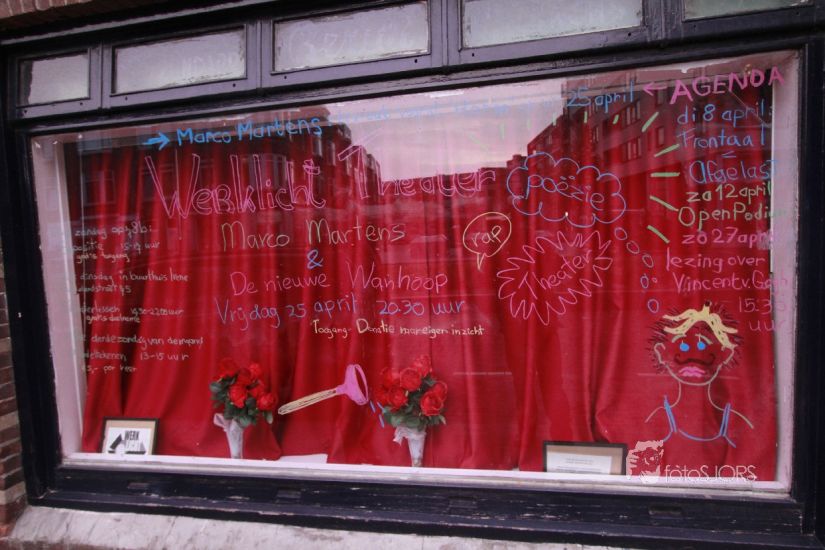 → Marco Martens
25 april
← AGENDA
di 8 april:
Frontaal
Afgelast
za 12 april
Open Podium
zo 27 april
lezing over
Vincent v. Gogh
15:30
uur
Werklicht Theater
Marco Martens
&
De nieuwe Wanhoop
Vrijdag 25 april 20.30 uur
Toegang - Donatie naar eigen inzicht
poëzie
rap
Theater
15-17 uur
gratis toegang
dinsdag in buurthuis Irene
19.30-22.00 uur
gratis deelname
derde zondag van de maand
13-15 uur
per keer
WERK
fotoSJORS